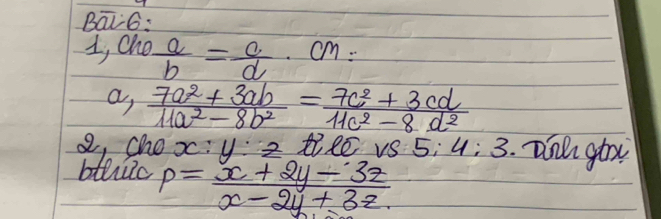 Bài 6:
1, Cho a/b = c/d. CM:
a, (7a² + 3ab)/(11a² - 8b²) = (7c² + 3cd)/(11c² - 8 d²)
2, cho x : y : z tỉ lệ vs 5; 4; 3. Tính gtrị
bthức p = (x + 2y - 3z)/(x - 2y + 3z).